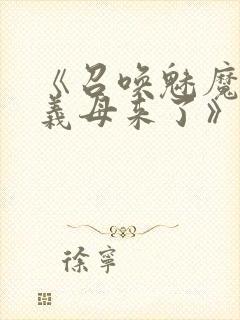 《召唤魅魔
義母来了》
徐寧